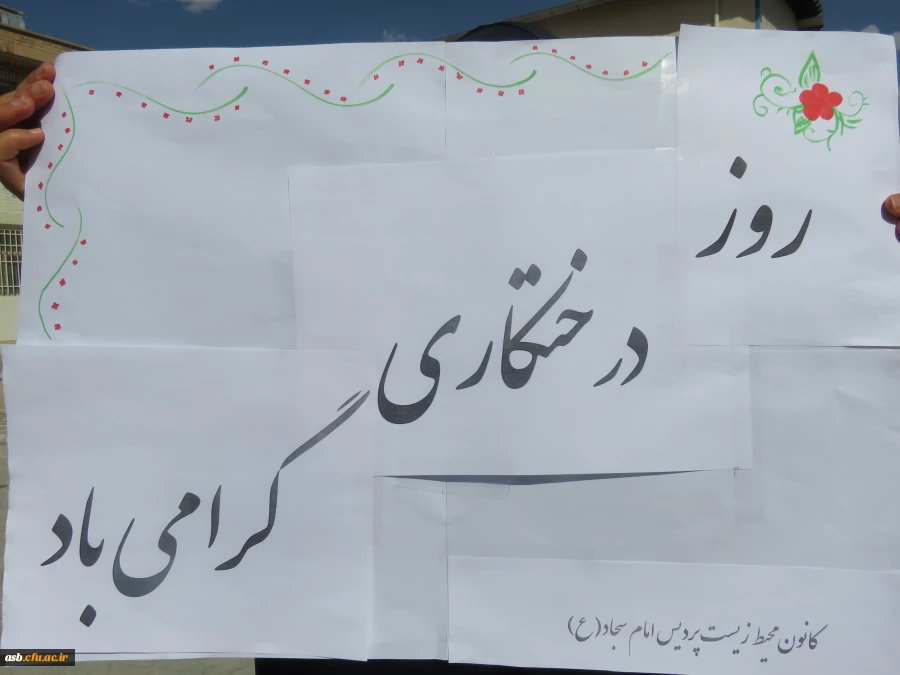 روز
درختکاری
گرامی باد
کانون محیط زیست پردیس امام سجاد(ع)
asb.cfu.ac.ir